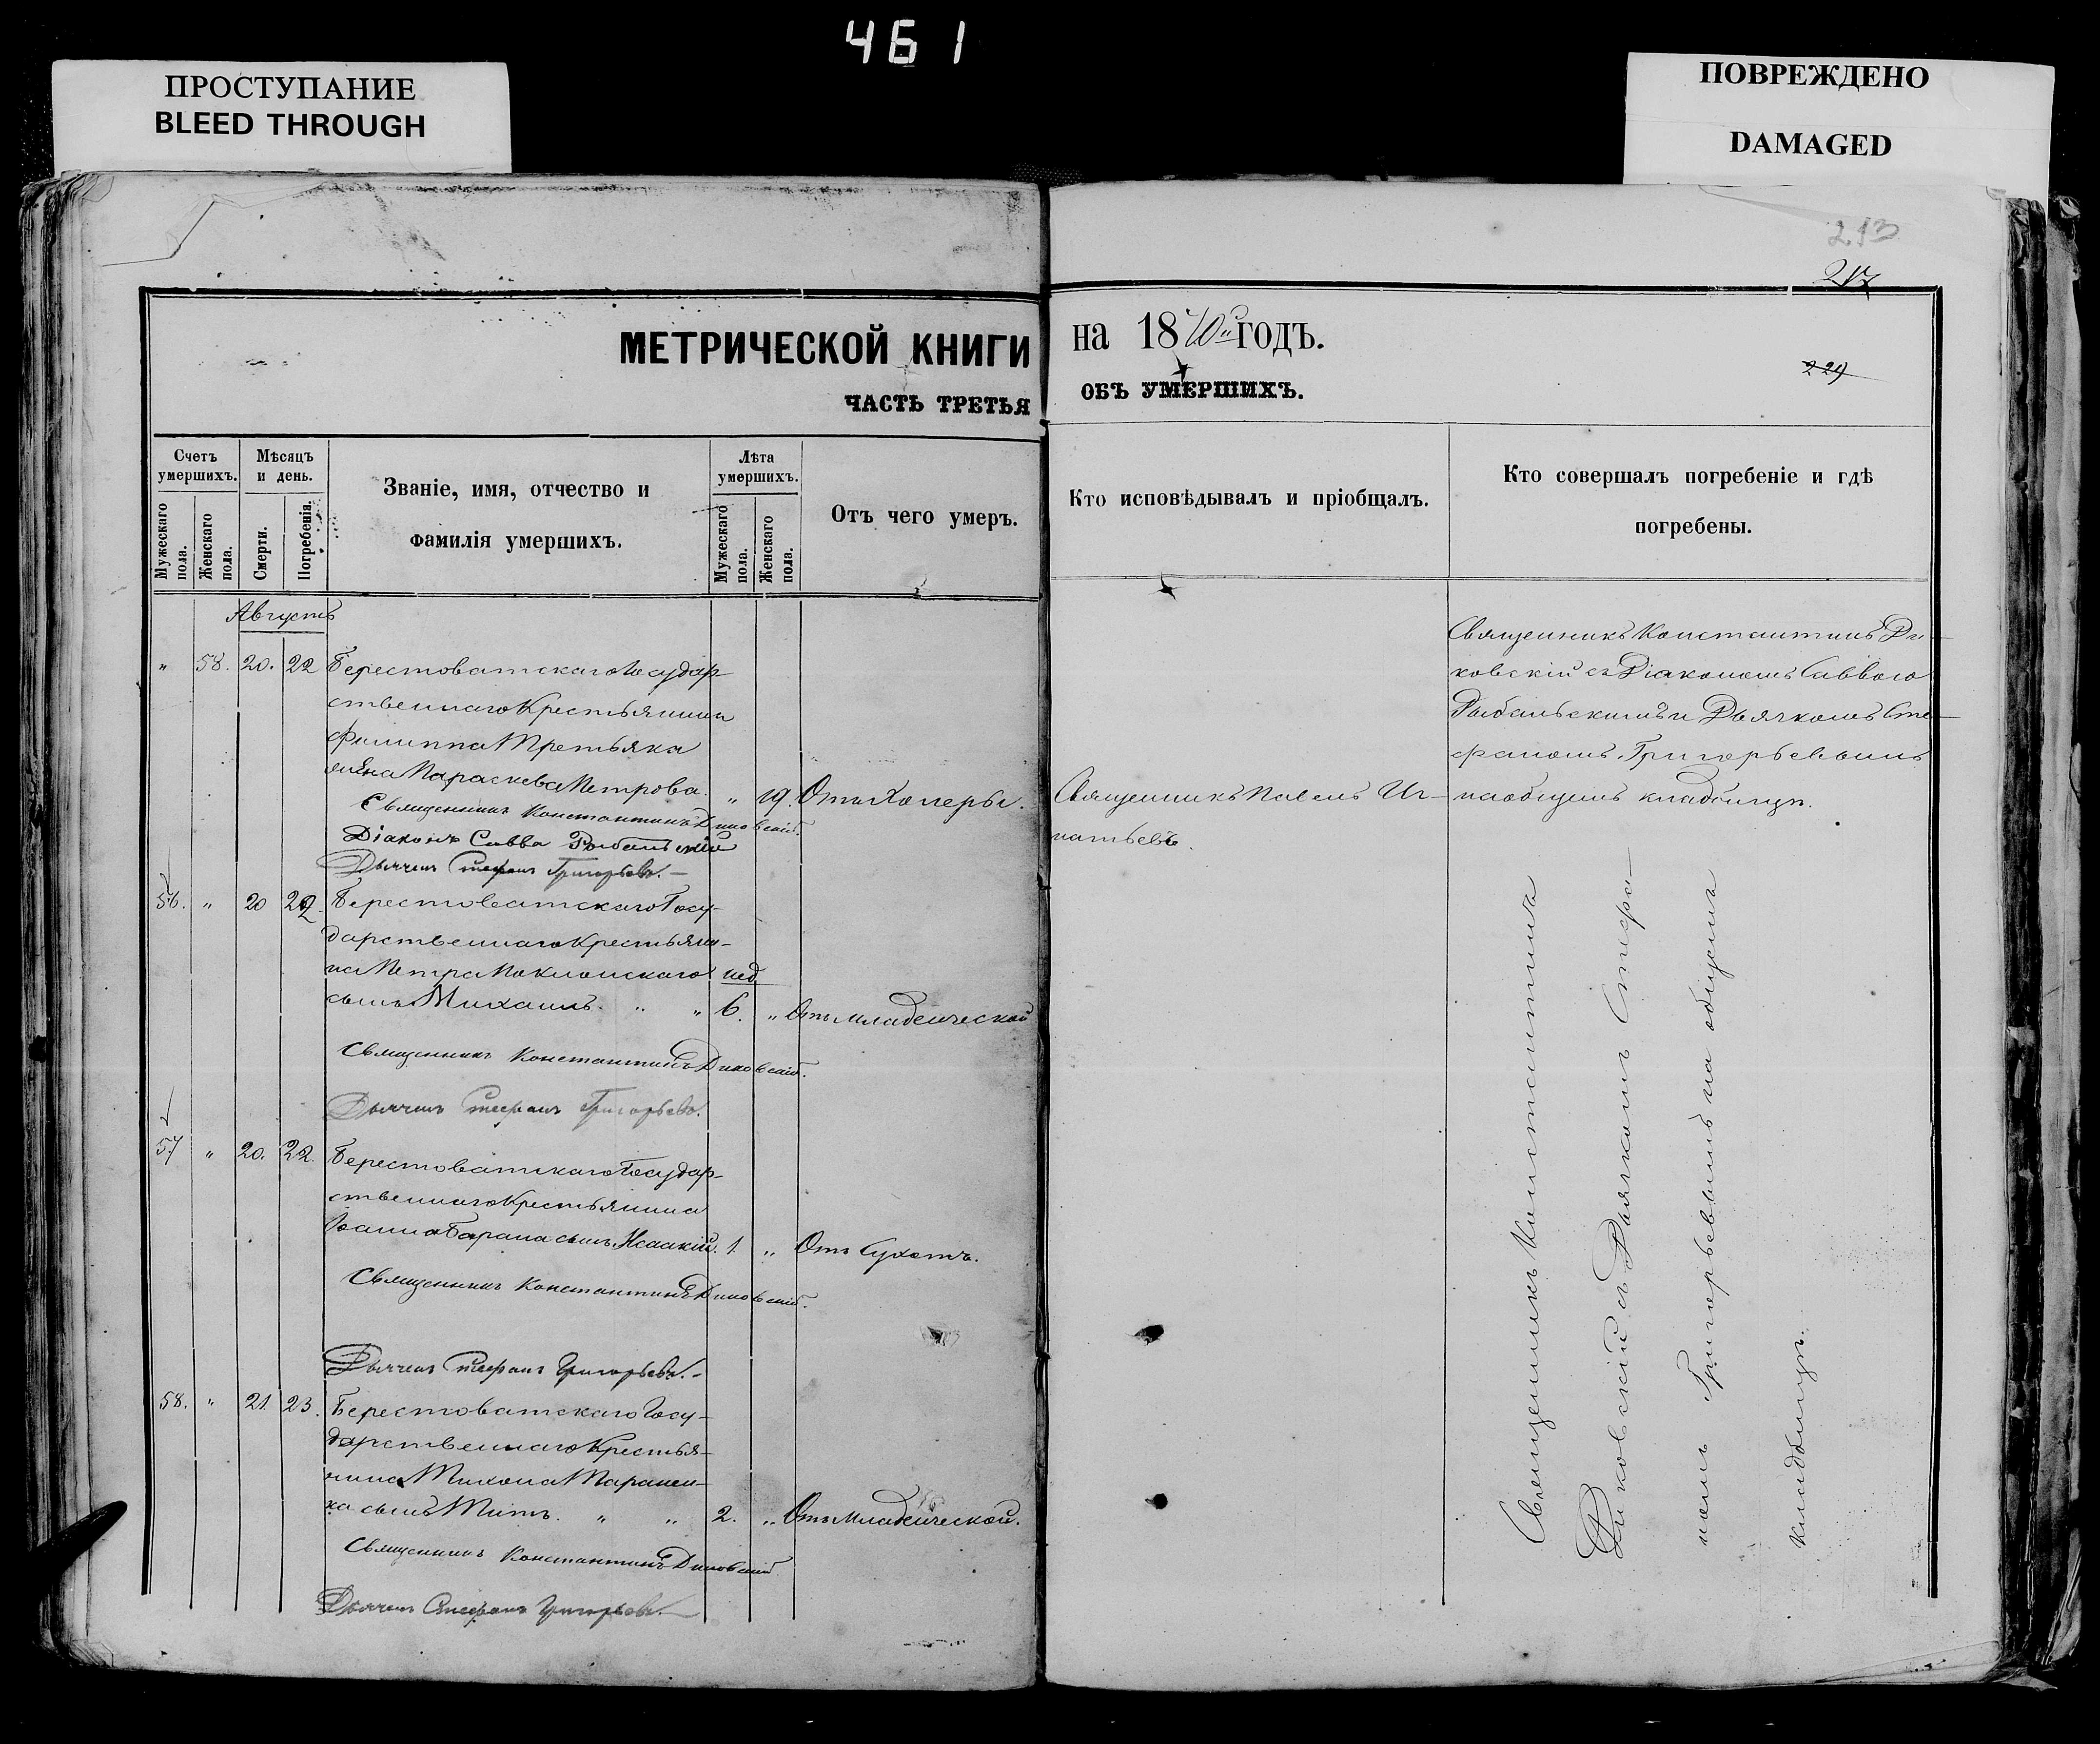 461
ПРОСТУПАНИЕ
BLEED THROUGH
ПОВРЕЖДЕНО
DAMAGED
213
217
229
МЕТРИЧЕСКОЙ КНИГИ на 1870й ГОДЪ.
ЧАСТЬ ТРЕТЬЯ ОБЪ УМЕРШИХЪ.
Счетъ умершихъ.
Мужескаго пола.
Женскаго пола.
Мѣсяцъ и день.
Смерти.
Погребенія.
Званіе, имя, отчество и
фамилія умершихъ.
Лѣта умершихъ.
Мужескаго пола.
Женскаго пола.
Отъ чего умеръ.
Кто исповѣдывалъ и пріобщалъ.
Кто совершалъ погребеніе и гдѣ
погребены.
Августъ
" 58. 20. 22 Берестоватскаго Государ-
ственнаго Крестьянина
Филиппа Третьяка
жена Параскева Петрова. " 19. Отъ Холеры.
Священникъ Павелъ Иг-
натьевъ.
Священникъ Константинъ Ди-
ковскій съ Діакономъ Саввою
Рыбальскимъ и Дьячкомъ Сте-
фаномъ Григорьевымъ
на общемъ кладбищѣ.
Священникъ Константинъ Диковскій.
Діаконъ Савва Рыбальскій
Дьячекъ Стефанъ Григорьевъ.
56. " 20 22. Берестоватскаго Госу-
дарственнаго Крестьяни-
на Петра Поклонскаго нед
сынъ Михаилъ. " " 6. " Отъ Младенческой
Священникъ Константинъ Диковскій.
Дьячекъ Стефанъ Григорьевъ.
57 " 20. 22. Берестоватскаго Государ-
ственнаго Крестьянина
Іоанна Барана сынъ Исаакій. 1. " Отъ Сухотъ.
Священникъ Константинъ Диковскій.
Дьячекъ Стефанъ Григорьевъ.
58. " 21. 23. Берестоватскаго Госу-
дарственнаго Крестья-
нина Тихона Таранен-
ка сынъ Титъ. " " 2. " Отъ Младенческой.
Священникъ Константинъ Диковскій
Дьячекъ Стефанъ Григорьевъ.
Священникъ Константинъ
Диковскій съ Дьячкомъ Стефа-
номъ Григорьевымъ на общемъ
кладбищѣ.